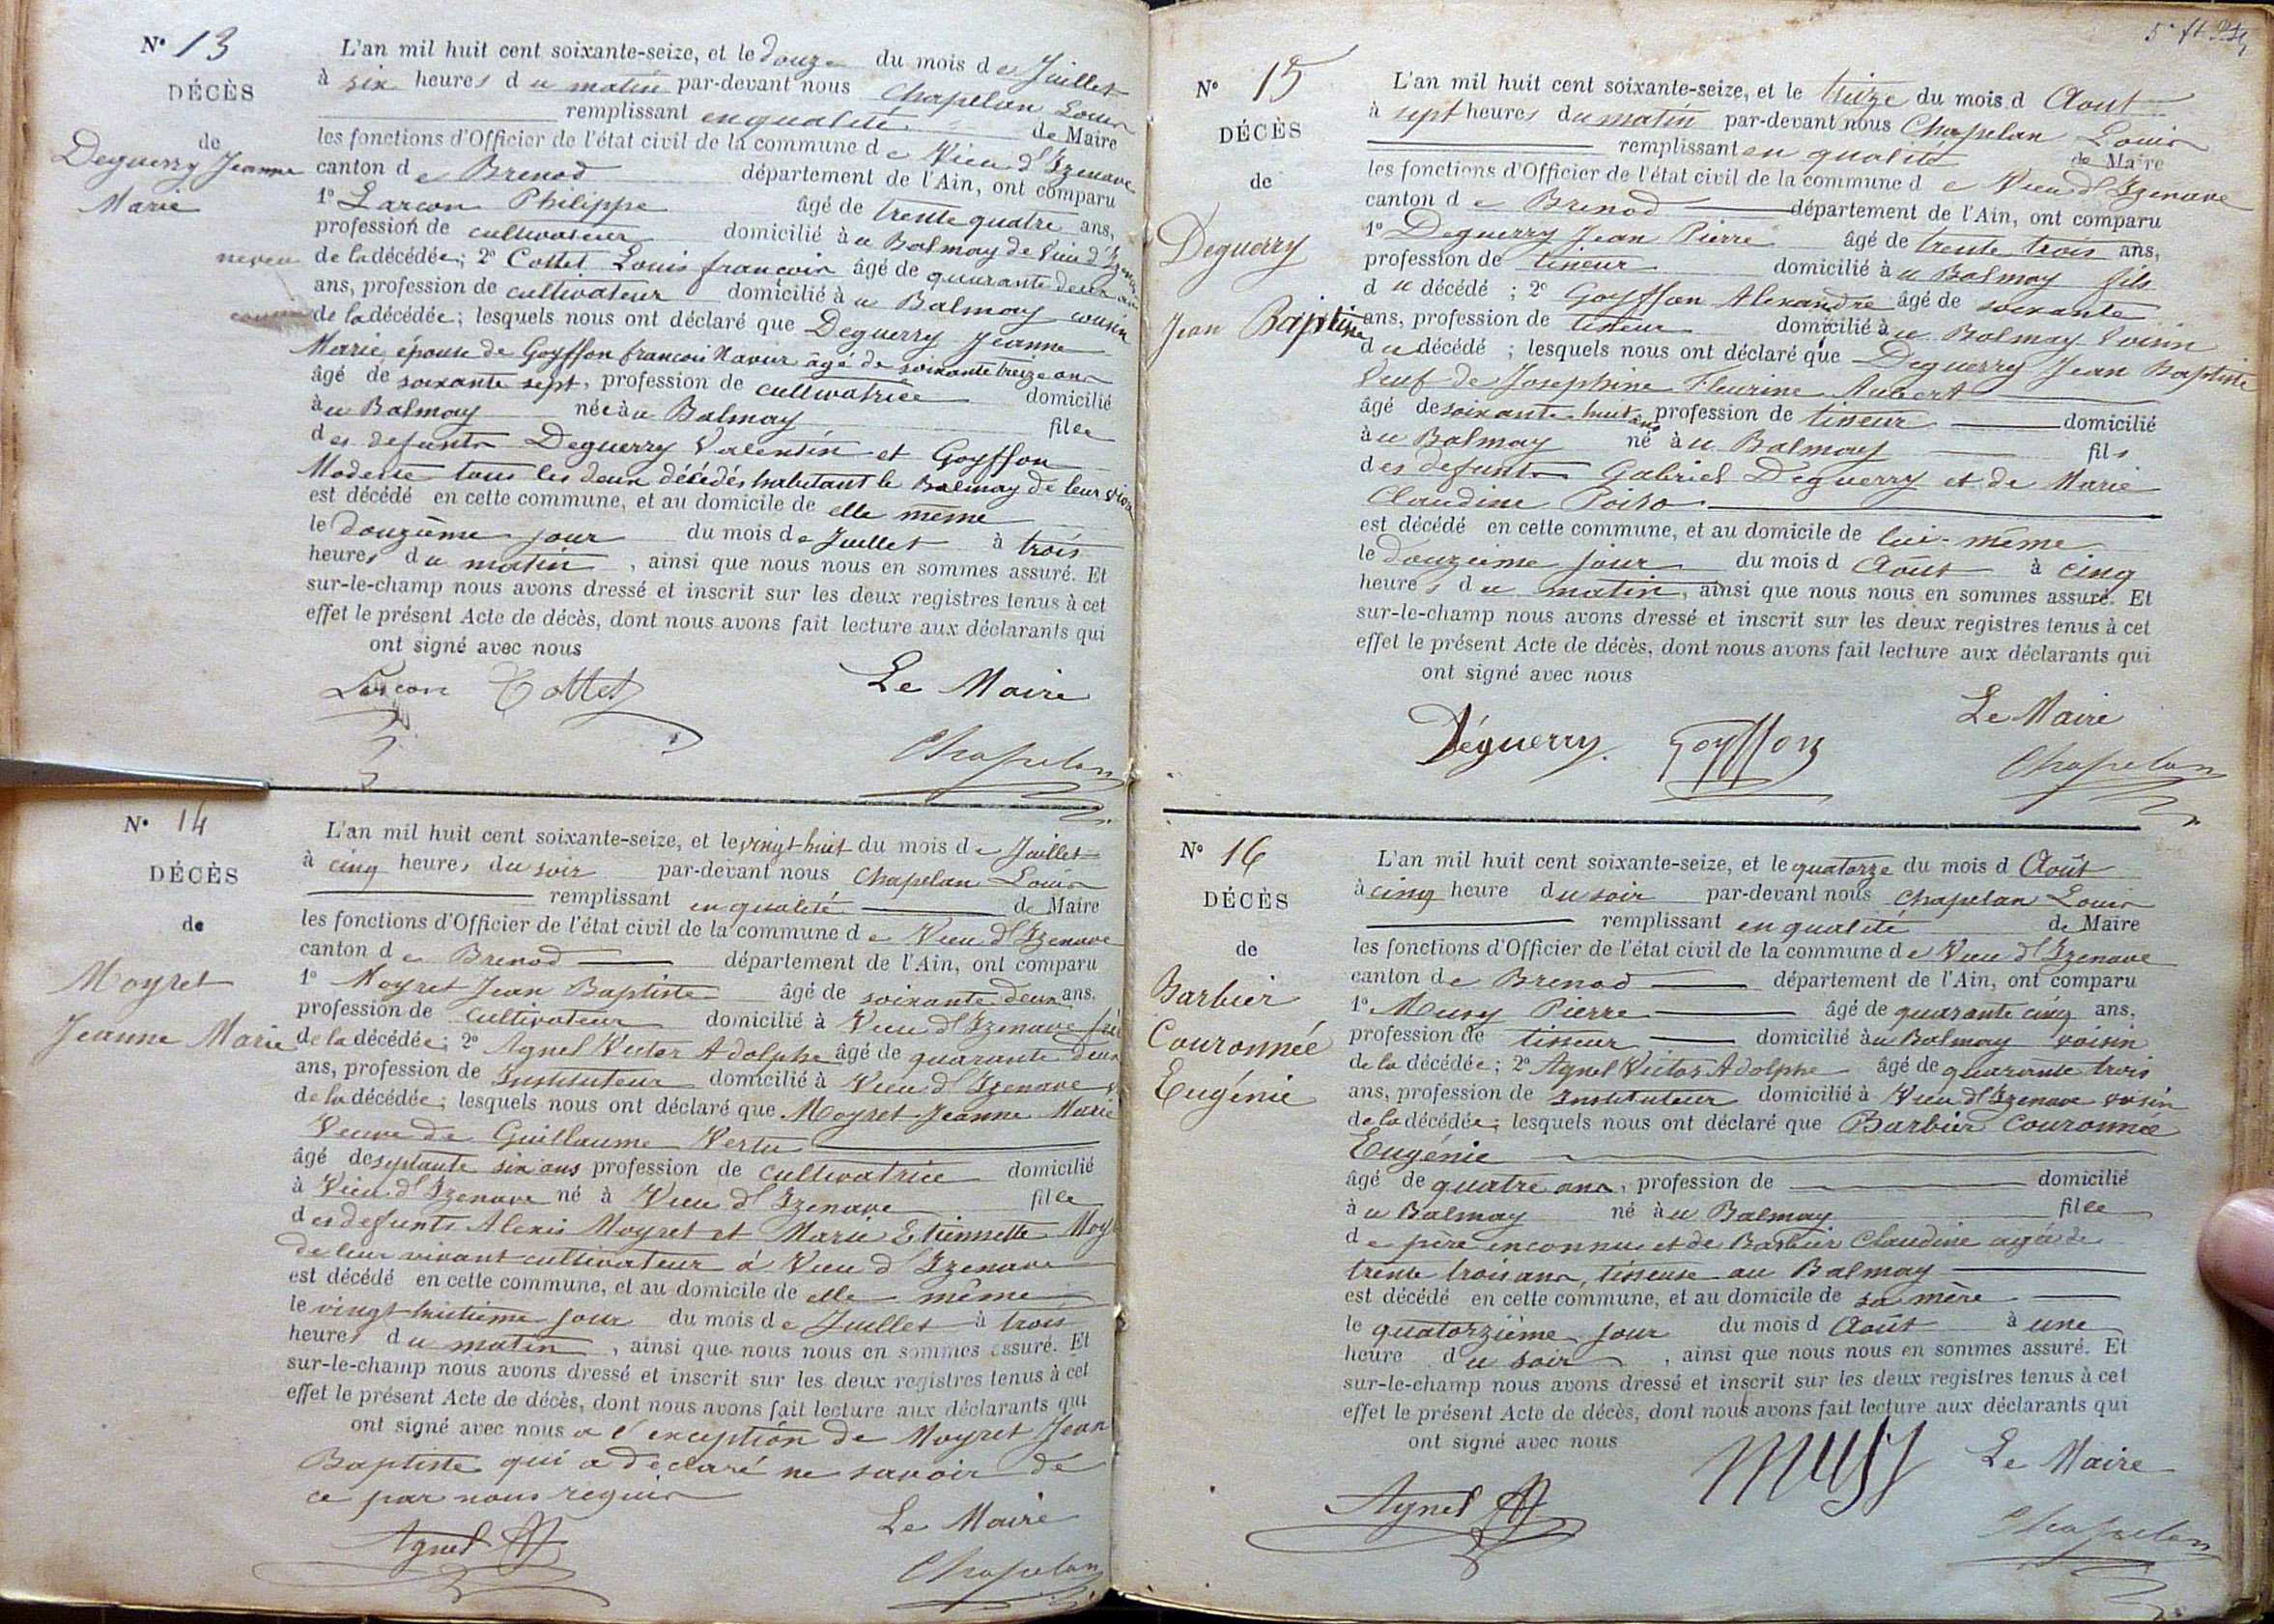 N° 13
DÉCÈS
de
Deguerry Jeanne
Marie
L'an mil huit cent soixante-seize, et le douze du mois de Juillet
à six heures du matin par-devant nous Chapelan Louis
remplissant en qualité de Maire
les fonctions d'Officier de l'état civil de la commune de Vieu d'Izenave
canton de Brenod département de l'Ain, ont comparu
1° Larcon Philippe âgé de trente quatre ans,
profession de cultivateur domicilié à u Balmay de Vieu d'Izenave
neveu de la décédée; 2° Cottet Louis françois âgé de quarante deux ans
ans, profession de cultivateur domicilié à u Balmay cousin
cousin de la décédée; lesquels nous ont déclaré que Deguerry Jeanne
Marie, épouse de Goyffon francois Xavier âgé de soixante treize ans
âgé de soixante sept, profession de cultivatrice domicilié
à u Balmay née à u Balmay fille
des defunts Deguerry Valentin et Goyffon
Modeste tous les deux décédés habitant le Balmay de leur vivant
est décédé en cette commune, et au domicile de elle même
le douzième jour du mois de Juillet à trois
heures du matin, ainsi que nous nous en sommes assuré. Et
sur-le-champ nous avons dressé et inscrit sur les deux registres tenus à cet
effet le présent Acte de décès, dont nous avons fait lecture aux déclarants qui
ont signé avec nous
Larcon Cottet Le Maire
Chapelan
N° 14
DÉCÈS
de
Moyret
Jeanne Marie
L'an mil huit cent soixante-seize, et le vingt huit du mois de Juillet
à cinq heures du soir par-devant nous Chapelan Louis
remplissant en qualité de Maire
les fonctions d'Officier de l'état civil de la commune de Vieu d'Izenave
canton de Brenod département de l'Ain, ont comparu
1° Moyret Jean Baptiste âgé de soixante deux ans.
profession de cultivateur domicilié à Vieu d'Izenave
de la décédée; 2° Agnel Victor Adolphe âgé de quarante deux
ans, profession de Instituteur domicilié à Vieu d'Izenave
de la décédée; lesquels nous ont déclaré que Moyret Jeanne Marie
Veuve de Guillaume Vertu
âgé de septante six ans profession de cultivatrice domicilié
à Vieu d'Izenave né à Vieu d'Izenave fille
des defunts Alexis Moyret et Marie Etiennette
de leur vivant cultivateur à Vieu d'Izenave
est décédé en cette commune, et au domicile de elle même
le vingt huitième jour du mois de Juillet à trois
heures du matin, ainsi que nous nous en sommes assuré. Et
sur-le-champ nous avons dressé et inscrit sur les deux registres tenus à cet
effet le présent Acte de décès, dont nous avons fait lecture aux déclarants qui
ont signé avec nous a l'exception de Moyret Jean
Baptiste qui a déclaré ne savoir de
ce par nous requis
Agnel Le Maire
Chapelan
N° 15
DÉCÈS
de
Deguerry
Jean Baptiste
L'an mil huit cent soixante-seize, et le treize du mois d Aout
à sept heures du matin par-devant nous Chapelan Louis
remplissant en qualité de Maire
les fonctions d'Officier de l'état civil de la commune de Vieu d'Izenave
canton de Brenod département de l'Ain, ont comparu
1° Deguerry Jean Pierre âgé de trente trois ans,
profession de tisseur domicilié à u Balmay fils
du décédé; 2° Goyffon Alexandre âgé de soixante
ans, profession de tisseur domicilié à u Balmay Voisin
du décédé; lesquels nous ont déclaré que Deguerry Jean Baptiste
Veuf de Josephine Fleurine Aubert
âgé de soixante huit ans profession de tisseur domicilié
à u Balmay né à u Balmay fils
des defunts Gabriel Deguerry et de Marie
Claudine Poiro
est décédé en cette commune, et au domicile de lui-même
le douzeime jour du mois d Août à cinq
heures du matin, ainsi que nous nous en sommes assuré. Et
sur-le-champ nous avons dressé et inscrit sur les deux registres tenus à cet
effet le présent Acte de décès, dont nous avons fait lecture aux déclarants qui
ont signé avec nous
Le Maire
Déguerry. Goyffon
Chapelan
N° 16
DÉCÈS
de
Barbier
Couronnée
Eugénie
L'an mil huit cent soixante-seize, et le quatorze du mois d Août
à cinq heure du soir par-devant nous Chapelan Louis
remplissant en qualité de Maire
les fonctions d'Officier de l'état civil de la commune de Vieu d'Izenave
canton de Brenod département de l'Ain, ont comparu
1° Musy Pierre âgé de quarante cinq ans.
profession de tisseur domicilié à u Balmay voisin
de la décédée; 2° Agnel Victor Adolphe âgé de quarante trois
ans, profession de Instituteur domicilié à Vieu d'Izenave voisin
de la décédée; lesquels nous ont déclaré que Barbier Couronnée
Eugénie
âgé de quatre ans, profession de domicilié
à u Balmay né à u Balmay fille
de père inconnu et de Barbier Claudine agée de
trente trois ans, tisseuse au Balmay
est décédé en cette commune, et au domicile de sa mère
le quatorzième jour du mois d Août à une
heure du soir, ainsi que nous nous en sommes assuré. Et
sur-le-champ nous avons dressé et inscrit sur les deux registres tenus à cet
effet le présent Acte de décès, dont nous avons fait lecture aux déclarants qui
ont signé avec nous
Agnel Musy Le Maire
Chapelan